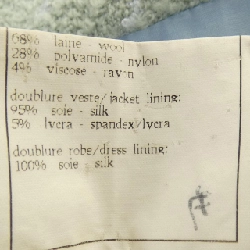 68% laine - wool
28% polyamide - nylon
4% viscose - rayon
doublure veste/jacket lining:
95% soie - silk
5% lycra - spandex/lycra
doublure robe/dress lining:
100% soie - silk